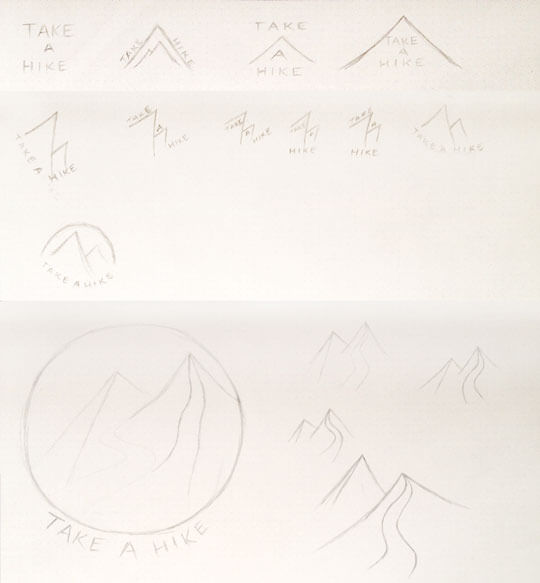 TAKE
A
HIKE
TAKE HIKE
TAKE
A
HIKE
TAKE
A
HIKE
TAKE A HIKE
TAKE
A
HIKE
TAKE
A
HIKE
TAKE
A
HIKE
TAKE
A
HIKE
TAKE A HIKE
TAKE A HIKE
TAKE A HIKE